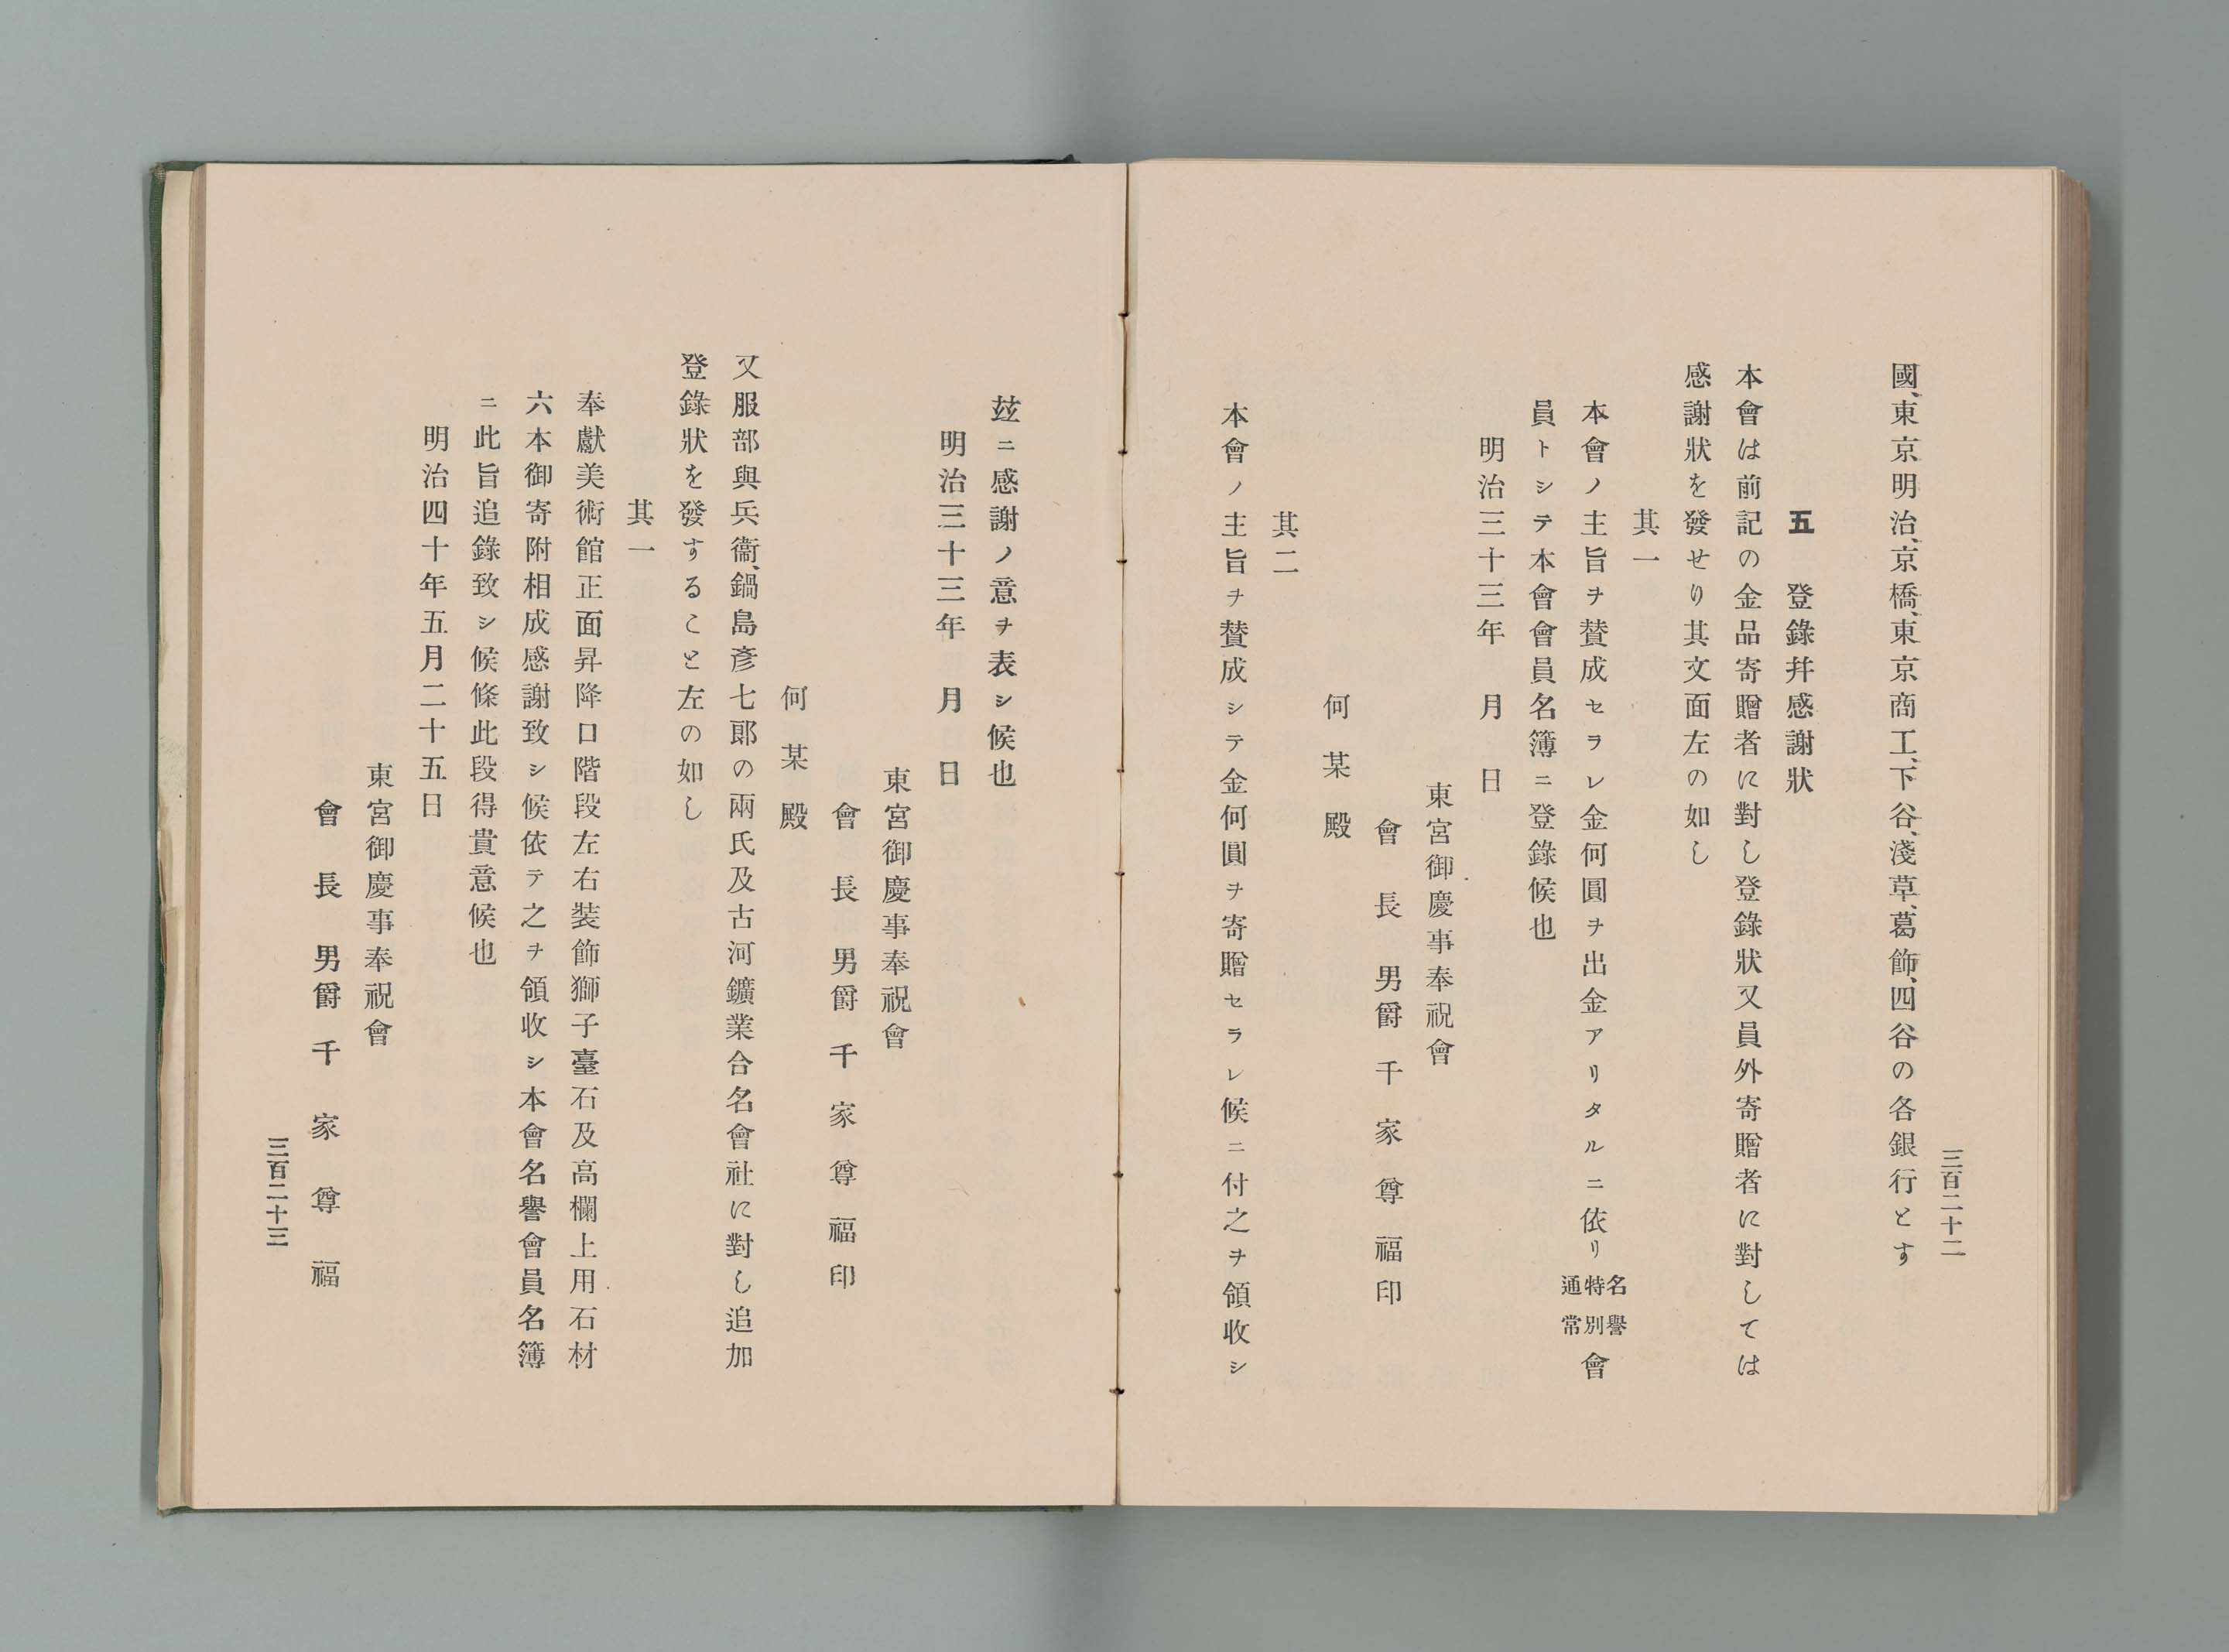 三百二十二
國、東京明治、京橋、東京商工、下谷、淺草、葛飾、四谷の各銀行とす
五　登錄幷感謝狀
本會は前記の金品寄贈者に對し登錄狀又員外寄贈者に對しては
感謝狀を發せり其文面左の如し
其一
本會ノ主旨ヲ賛成セラレ金何圓ヲ出金アリタルニ依リ名譽特別通常會
員トシテ本會會員名簿ニ登錄候也
明治三十三年　月　日
東宮御慶事奉祝會
會長　男爵　千家尊福印
何某殿
其二
本會ノ主旨ヲ賛成シテ金何圓ヲ寄贈セラレ候ニ付之ヲ領收シ
玆ニ感謝ノ意ヲ表シ候也
明治三十三年　月　日
東宮御慶事奉祝會
會長　男爵　千家尊福印
何某殿
又服部與兵衞、鍋島彥七郞の兩氏及古河鑛業合名會社に對し追加
登錄狀を發すること左の如し
其一
奉獻美術館正面昇降口階段左右裝飾獅子臺石及高欄上用石材
六本御寄附相成感謝致シ候依テ之ヲ領收シ本會名譽會員名簿
ニ此旨追錄致シ候條此段得貴意候也
明治四十年五月二十五日
東宮御慶事奉祝會
會長　男爵　千家尊福
三百二十三